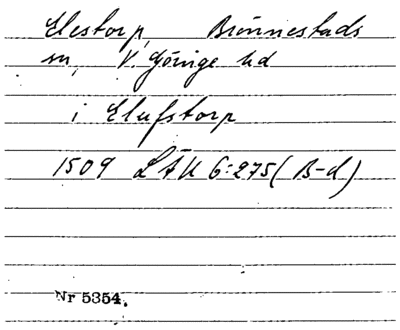 Elestorp, Brönnestads
sn, V. Göinge hd
i Elufstorp
1509 LÄU 6:275 (B-d)
Nr 5354.